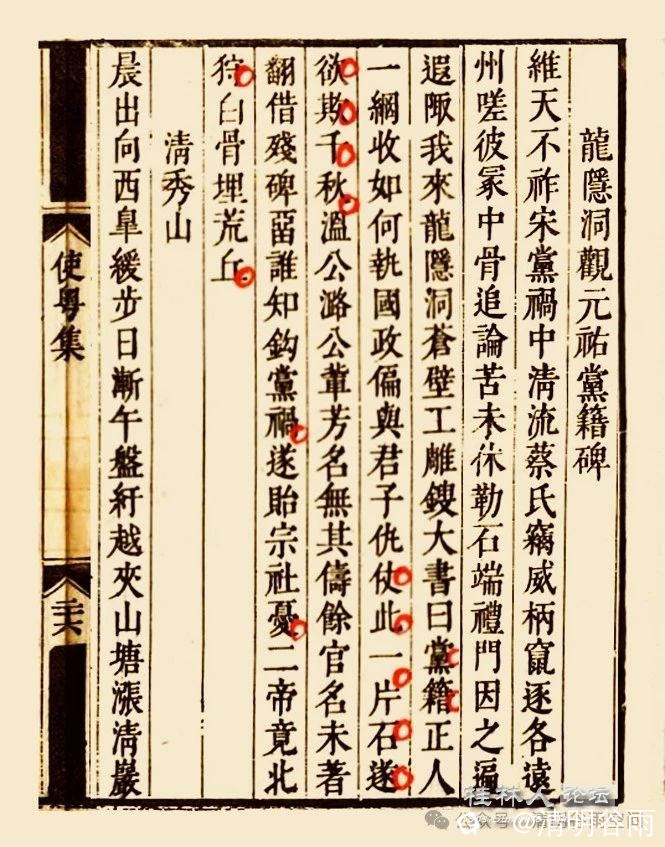 龍隱洞觀元祐黨籍碑
維天不祚宋黨禍中清流蔡氏竊威柄竄逐各遠
州嗟彼冢中骨追論苦未休勒石端禮門因之遍
遐陬我來龍隱洞蒼壁工雕鎪大書曰黨籍正人
一網收如何執國政偏與君子仇使此一片石遂
欲欺千秋溫公潞公輩芳名無其儔餘官名未著
翻借殘碑留誰知鈎黨禍遂貽宗社憂二帝竟北
狩白骨埋荒丘
清秀山
晨出向西皐緩步日漸午盤紆越夾山塘漲清巖
使粵集
二十六
桂林人论坛
@清明谷雨